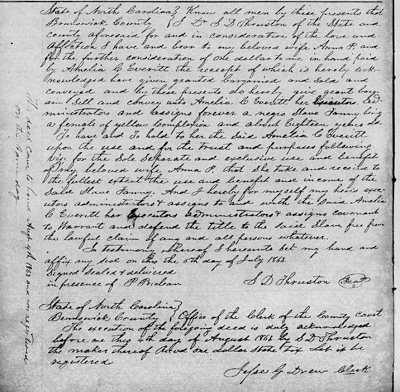 State of North Carolina } Know all men by these presents that
Brunswick County } I Dr S D Thruston of the State and
county aforesaid for and in consideration of the love and
affection I have and bear to my beloved wife Anna P. and
for the further consideration of one dollar to me in hand paid
by Amelia C Everitt the receipt of which is hereby ack-
nowledged have given granted bargained and sold and
conveyed and by these presents do hereby give grant barg-
ain sell and convey unto Amelia C Everitt her Executors ad-
ministrators and assigns forever a negro slave Fanny being
a female of yellow complexion and about Eighteen years old
To have and to hold to her the said Amelia C Everitt
upon the use and for the trust and purposes following
viz for the sole separate and exclusive use and benefit
of my beloved wife Anna P. that she take and receive to
the fullest extent the use and benefit and increase of the
said slave Fanny. And I hereby for myself my heirs exec-
utors administrators & assigns to and with the said Amelia
C Everitt her Executors administrators & assigns covenant
to warrant and defend the title to the said Slave free from
the lawful claim of any and all persons whatever.
In testimony whereof I hereunto set my hand and
affix my seal on this the 5th day of July 1863.
Signed sealed & delivered
in presence of P Prioleau S D Thruston Seal
State of North Carolina }
Brunswick County } Office of the Clerk of the County court
The execution of the foregoing deed is duly acknowledged
before me this 4th day of August 1863 by S D Thruston
the maker thereof Recd one dollar State tax Let it be
registered
Samuel G Drew Clerk
This deed came to hand August 1863 and was registered
on the same day